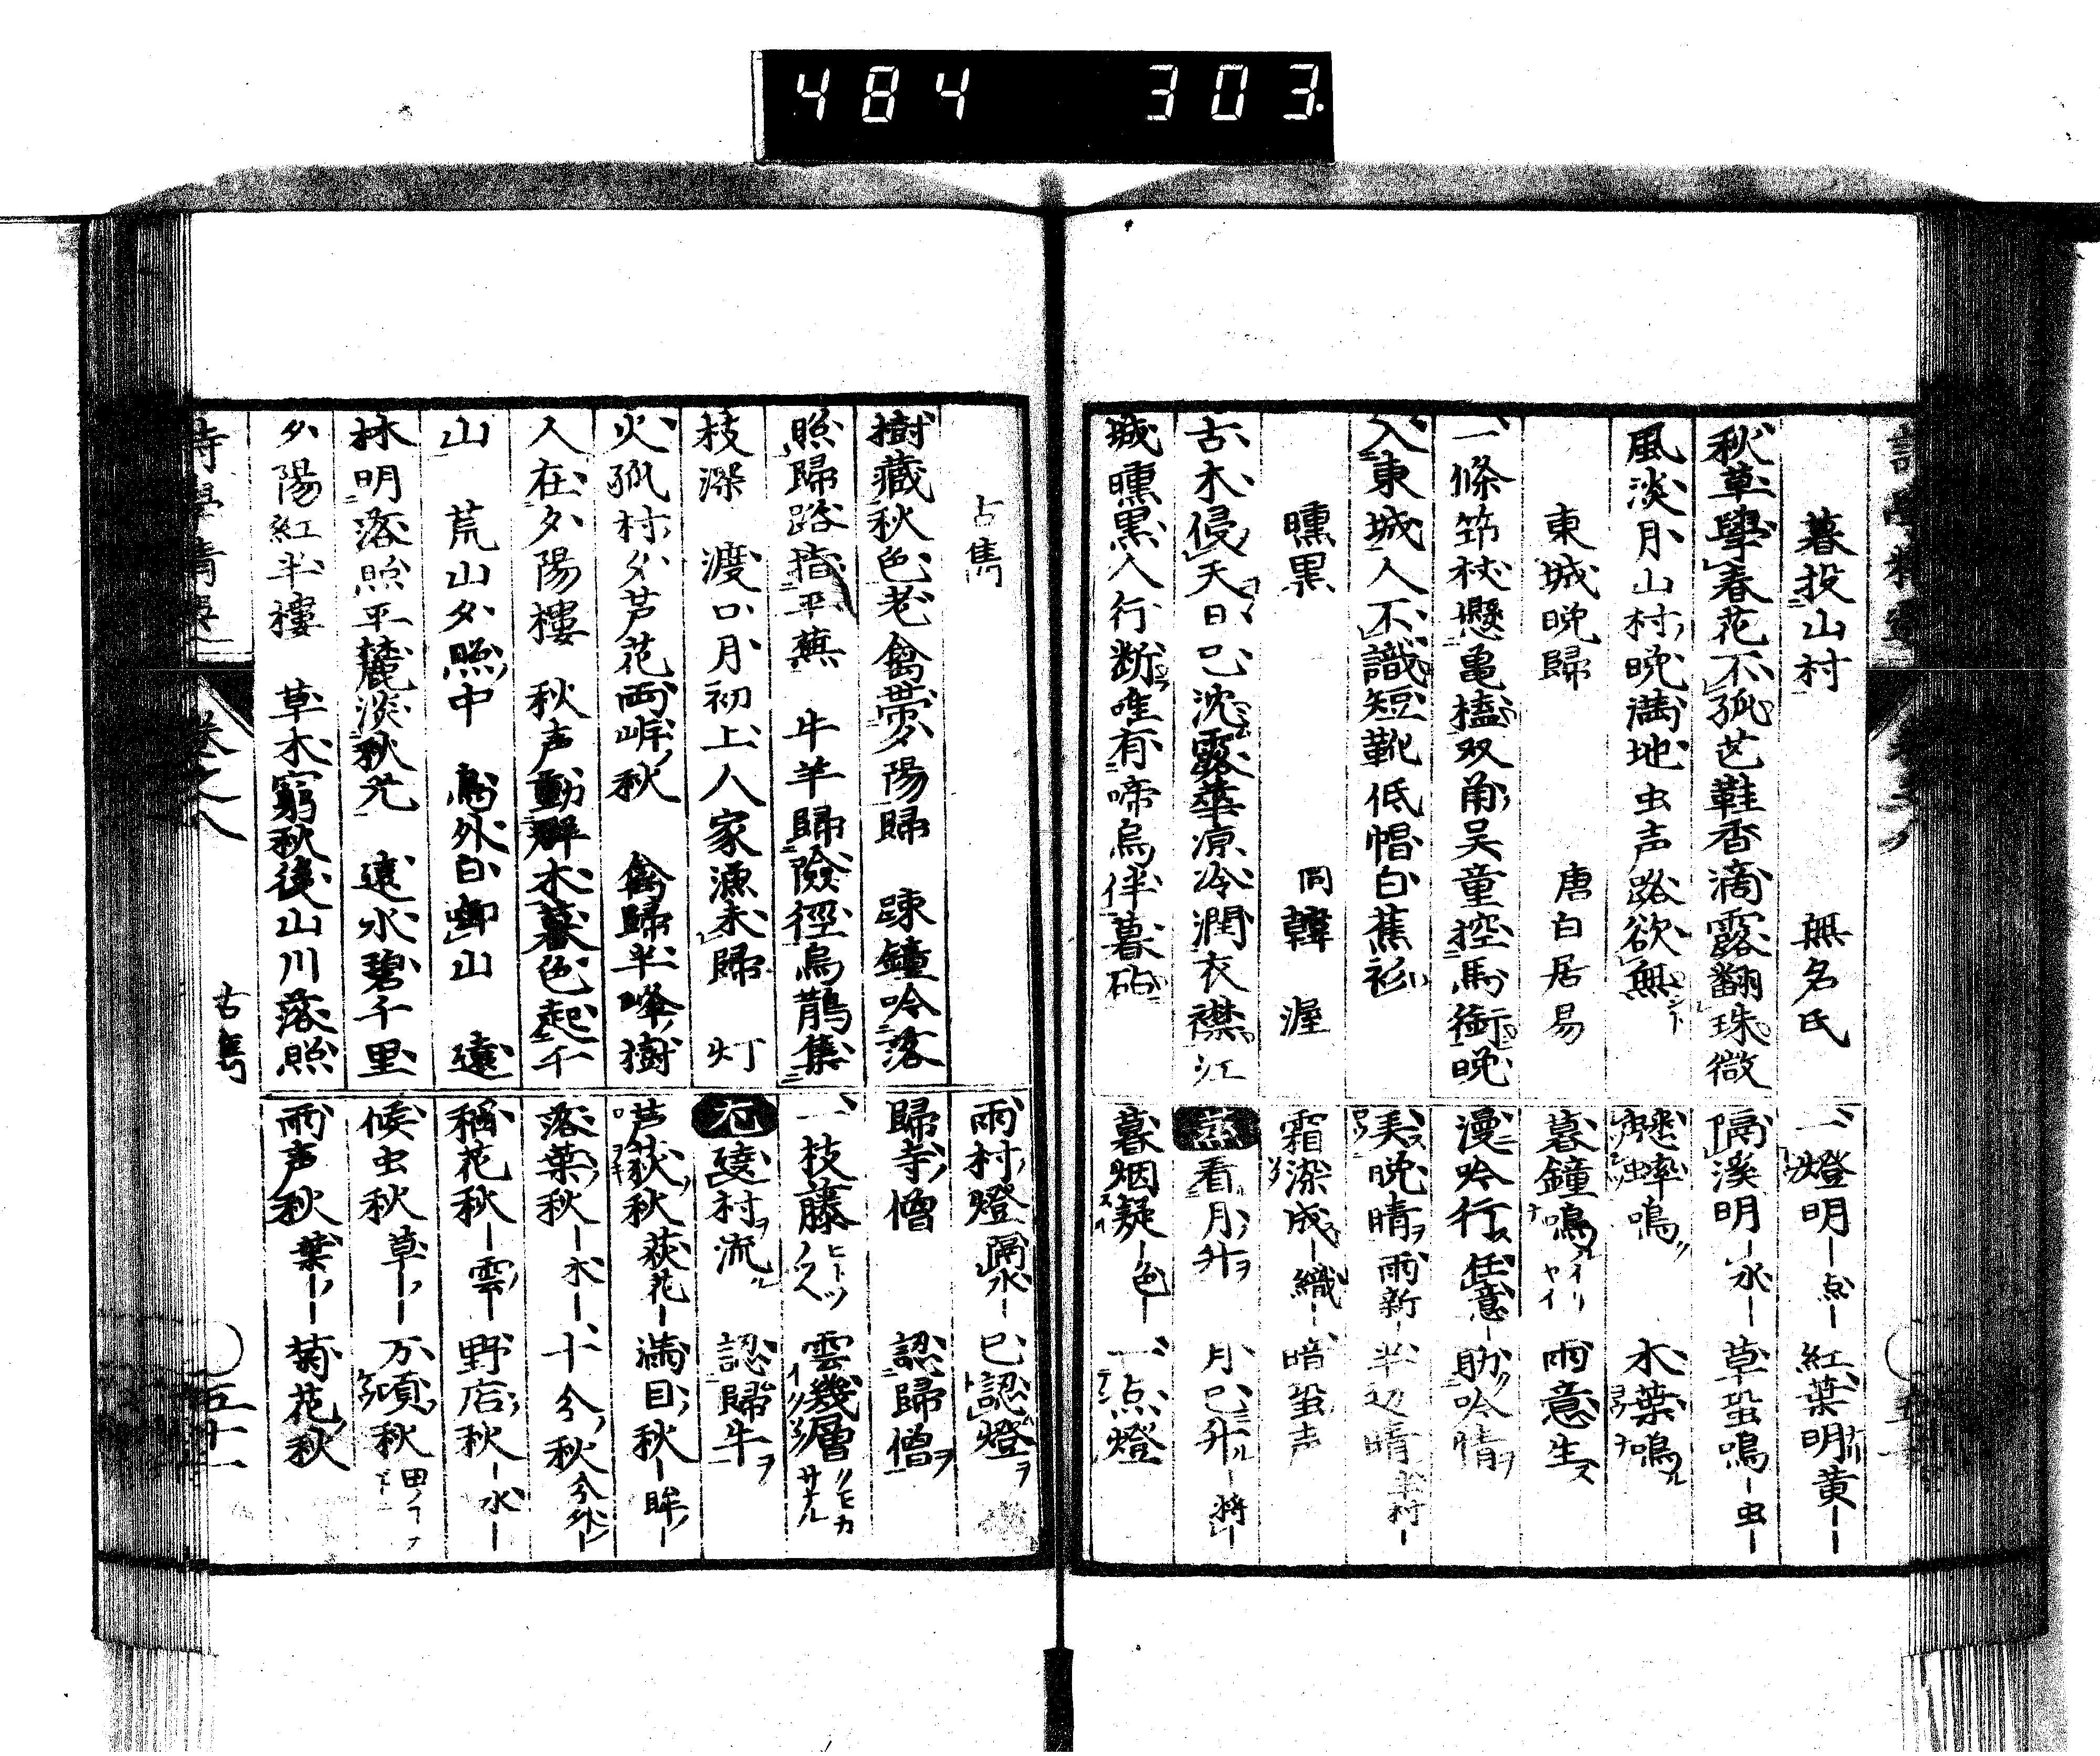 484 303
暮投山村 無名氏
秋草學春花不孤芒鞋香滴露翻珠微
風淡月山村晚満地虫声路欲無
東城晚歸 唐白居易
一條筇杖懸亀榼双角吴童控馬銜晚
入東城人不識短靴低帽白蕉衫
曛黒 同韓渥
古木侵天日已沈露華凉冷潤衣襟江
城曛黒人行断唯有啼烏伴暮砧
一燈明ー点ー 紅葉明黄ーー
隔溪明ー水ー 草蛩鳴ー虫ー
蟋蟀鳴 木葉鳴
暮鐘鳴 雨意生
漫吟行任意ー 助吟情
美晚晴雨新ー 半辺晴半村ー
霜染成ー織ー 暗蛩声
蒸 看月升 月已升ー将ー
暮烟凝ー色ー 一点燈
古雋
樹藏秋色老禽帶夕陽歸 疎鐘吟落
照歸路指平蕪 牛羊歸險徑烏鵲集
枝深 渡口月初上人家漁未歸 灯
火孤村夕芦花両岸秋 禽歸半峰樹
人在夕陽樓 秋声動群木暮色起千
山 荒山夕照中 鳥外白啣山 遠
林明落照平麓淡秋光 遠水碧千里
夕陽紅半樓 草木窮秋後山川落照
雨村燈隔水ー 已認燈
歸寺僧 認歸僧
一枝藤 雲幾層
遶村流 認歸牛
芦荻秋荻花ー 満目秋ー眸ー
落葉秋ー木ー 十分秋分外ー
稲花秋ー雲ー 野店秋ー水ー
候虫秋草ーー 万頃秋
雨声秋葉ーー 菊花秋
卷之八 古雋 五十一